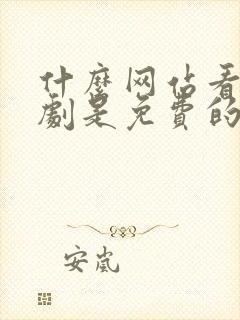 什麼网佔看
劇是免費的
安嵐